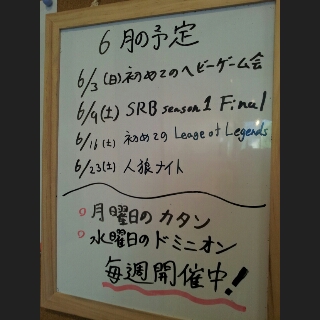 6月の予定
6/3(日)初めてのヘビーゲーム会
6/9(土) SRB season1 Final
6/16(土) 初めてのLeage of Legends
6/23(土) 人狼ナイト
月曜日のカタン
水曜日のドミニオン
毎週開催中!